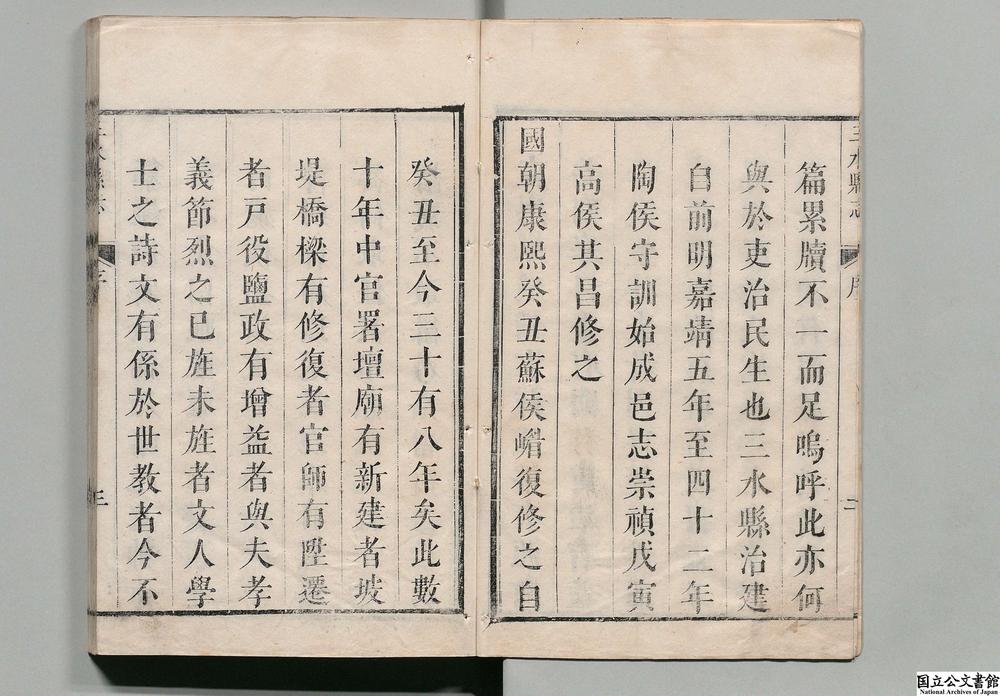 三水縣志
序
二
篇累牘不一而足嗚呼此亦何
與於吏治民生也三水縣治建
自前明嘉靖五年至四十二年
陶侯守訓始成邑志崇禎戊寅
高侯其昌修之
國朝康熙癸丑蘇侯嵋復修之自
癸丑至今三十有八年矣此數
十年中官署壇廟有新建者坡
堤橋樑有修復者官師有陞遷
者戶役鹽政有增益者與夫孝
義節烈之已旌未旌者文人學
士之詩文有係於世教者今不
三水縣志
序
三
国立公文書館
National Archives of Japan